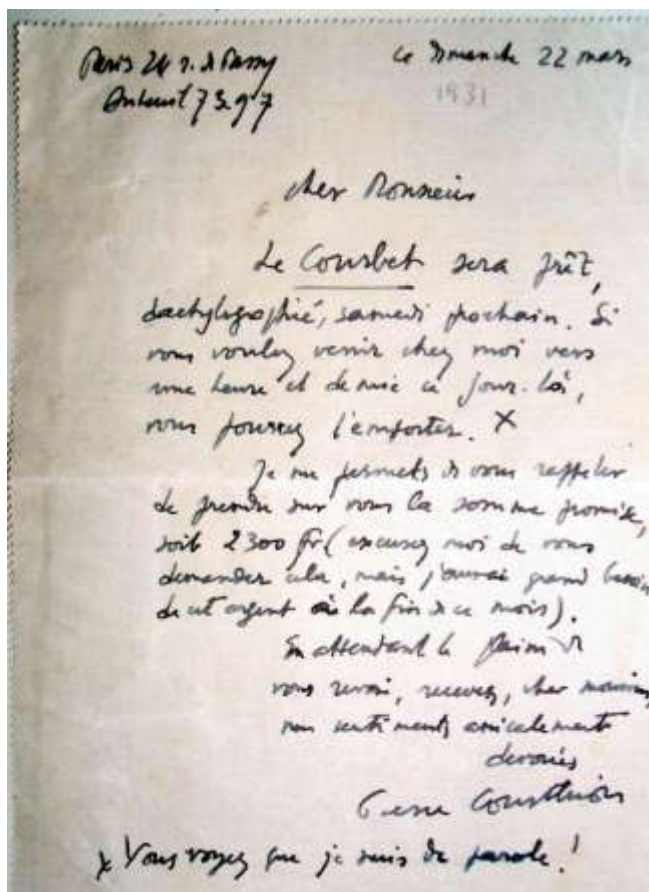 Paris 24 r. de Passy
le Dimanche 22 mars
Auteuil 73.97
1931
cher Monsieur
Le Courbet sera prêt,
dactylographié, samedi prochain. Si
vous voulez venir chez moi vers
une heure et demie ce jour-là,
vous pourrez l'emporter. X
Je me permets de vous rappeler
de prendre sur vous la somme promise,
soit 2300 fr (excusez moi de vous
demander cela, mais j'aurai grand besoin
de cet argent à la fin de ce mois).
En attendant le plaisir de
vous revoir, recevez, cher monsieur,
mes sentiments amicalement
dévoués
Pierre Courthion
x Vous voyez que je suis de parole!